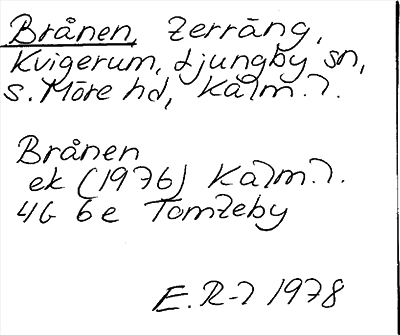 Brånen, Terräng,
Kvigerum, Ljungby sn,
S. Möre hd, Kalm. l.
Brånen
ek (1976) Kalm. l.
4G 6e Tomteby
E. R-l 1978